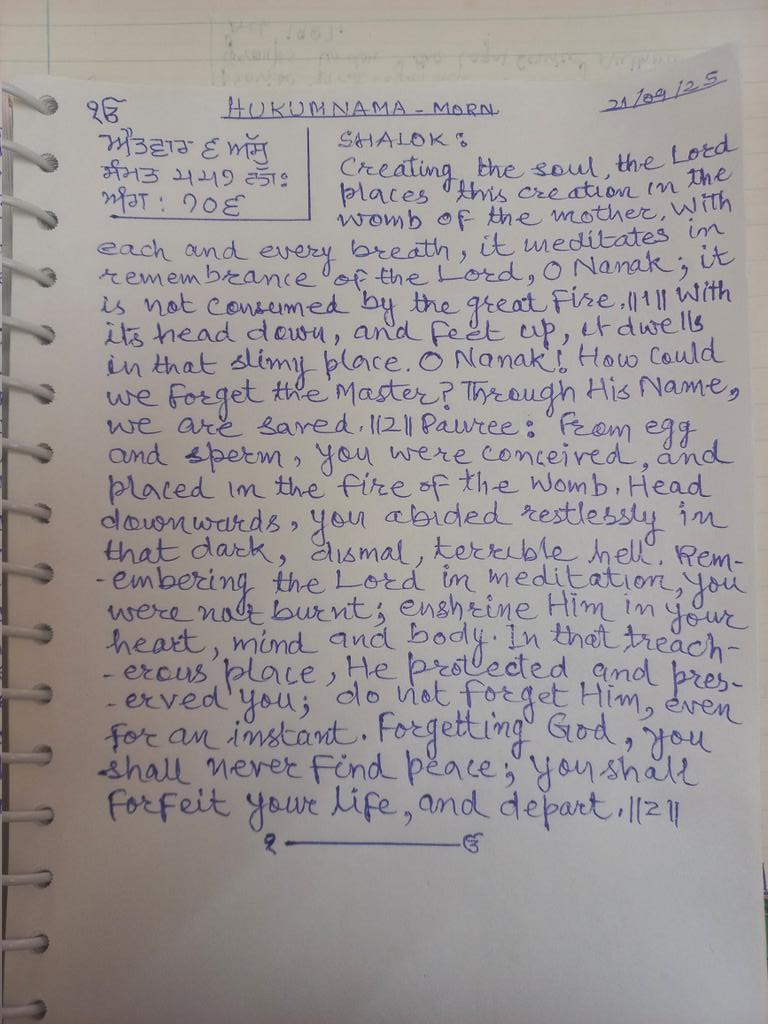 ੴ HUKUMNAMA - MORN 21/09/25
ਐਤਵਾਰ ੬ ਅੱਸੂ
ਸੰਮਤ ੫੫੭ ਨਾ:
ਅੰਗ : ੭੦੬
SHALOK :
Creating the soul, the Lord
places this creation in the
womb of the mother. With
each and every breath, it meditates in
remembrance of the Lord, O Nanak; it
is not consumed by the great fire.||1|| With
its head down, and feet up, it dwells
in that slimy place. O Nanak! How could
we forget the Master? Through His Name,
we are saved.||2|| Pauree: From egg
and sperm, you were conceived, and
placed in the fire of the womb. Head
downwards, you abided restlessly in
that dark, dismal, terrible hell. Rem-
-embering the Lord in meditation, you
were not burnt; enshrine Him in your
heart, mind and body. In that treach-
-erous place, He protected and pres-
-erved you; do not forget Him, even
for an instant. Forgetting God, you
shall never find peace; you shall
forfeit your life, and depart.||2||
੧ ————— ਓ